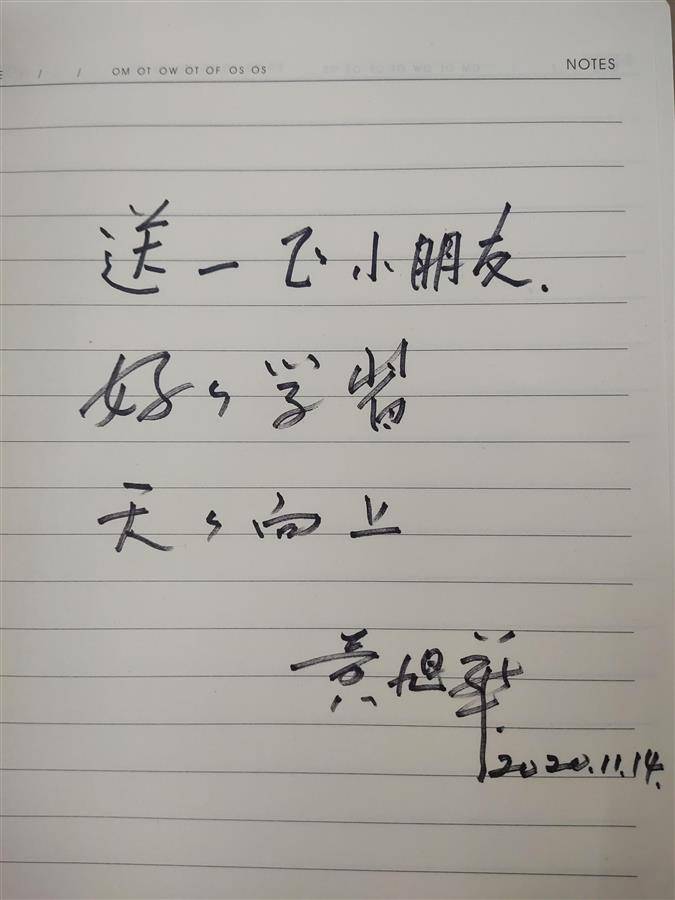 E / / OM OT OW OT OF OS OS NOTES
送一飞小朋友.
好々学習
天々向上
黄旭華
2020.11.14.